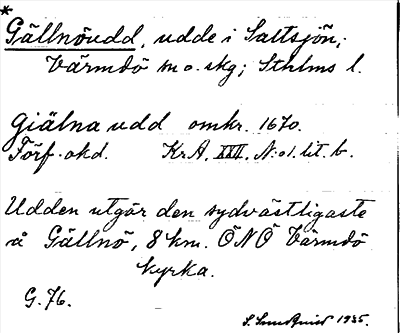 *
Gällnöudd, udde i Saltsjön;
Värmdö sn o. skg; Sthlms l.
Giälna udd omkr. 1670.
Förf. okd. KrA, XXII, N:o 1. lit. b.
Udden utgör den sydvästligaste
å Gällnö, 8 km. ÖNÖ Värmdö
kyrka.
G. 76.
S. Sundqvist 1935.